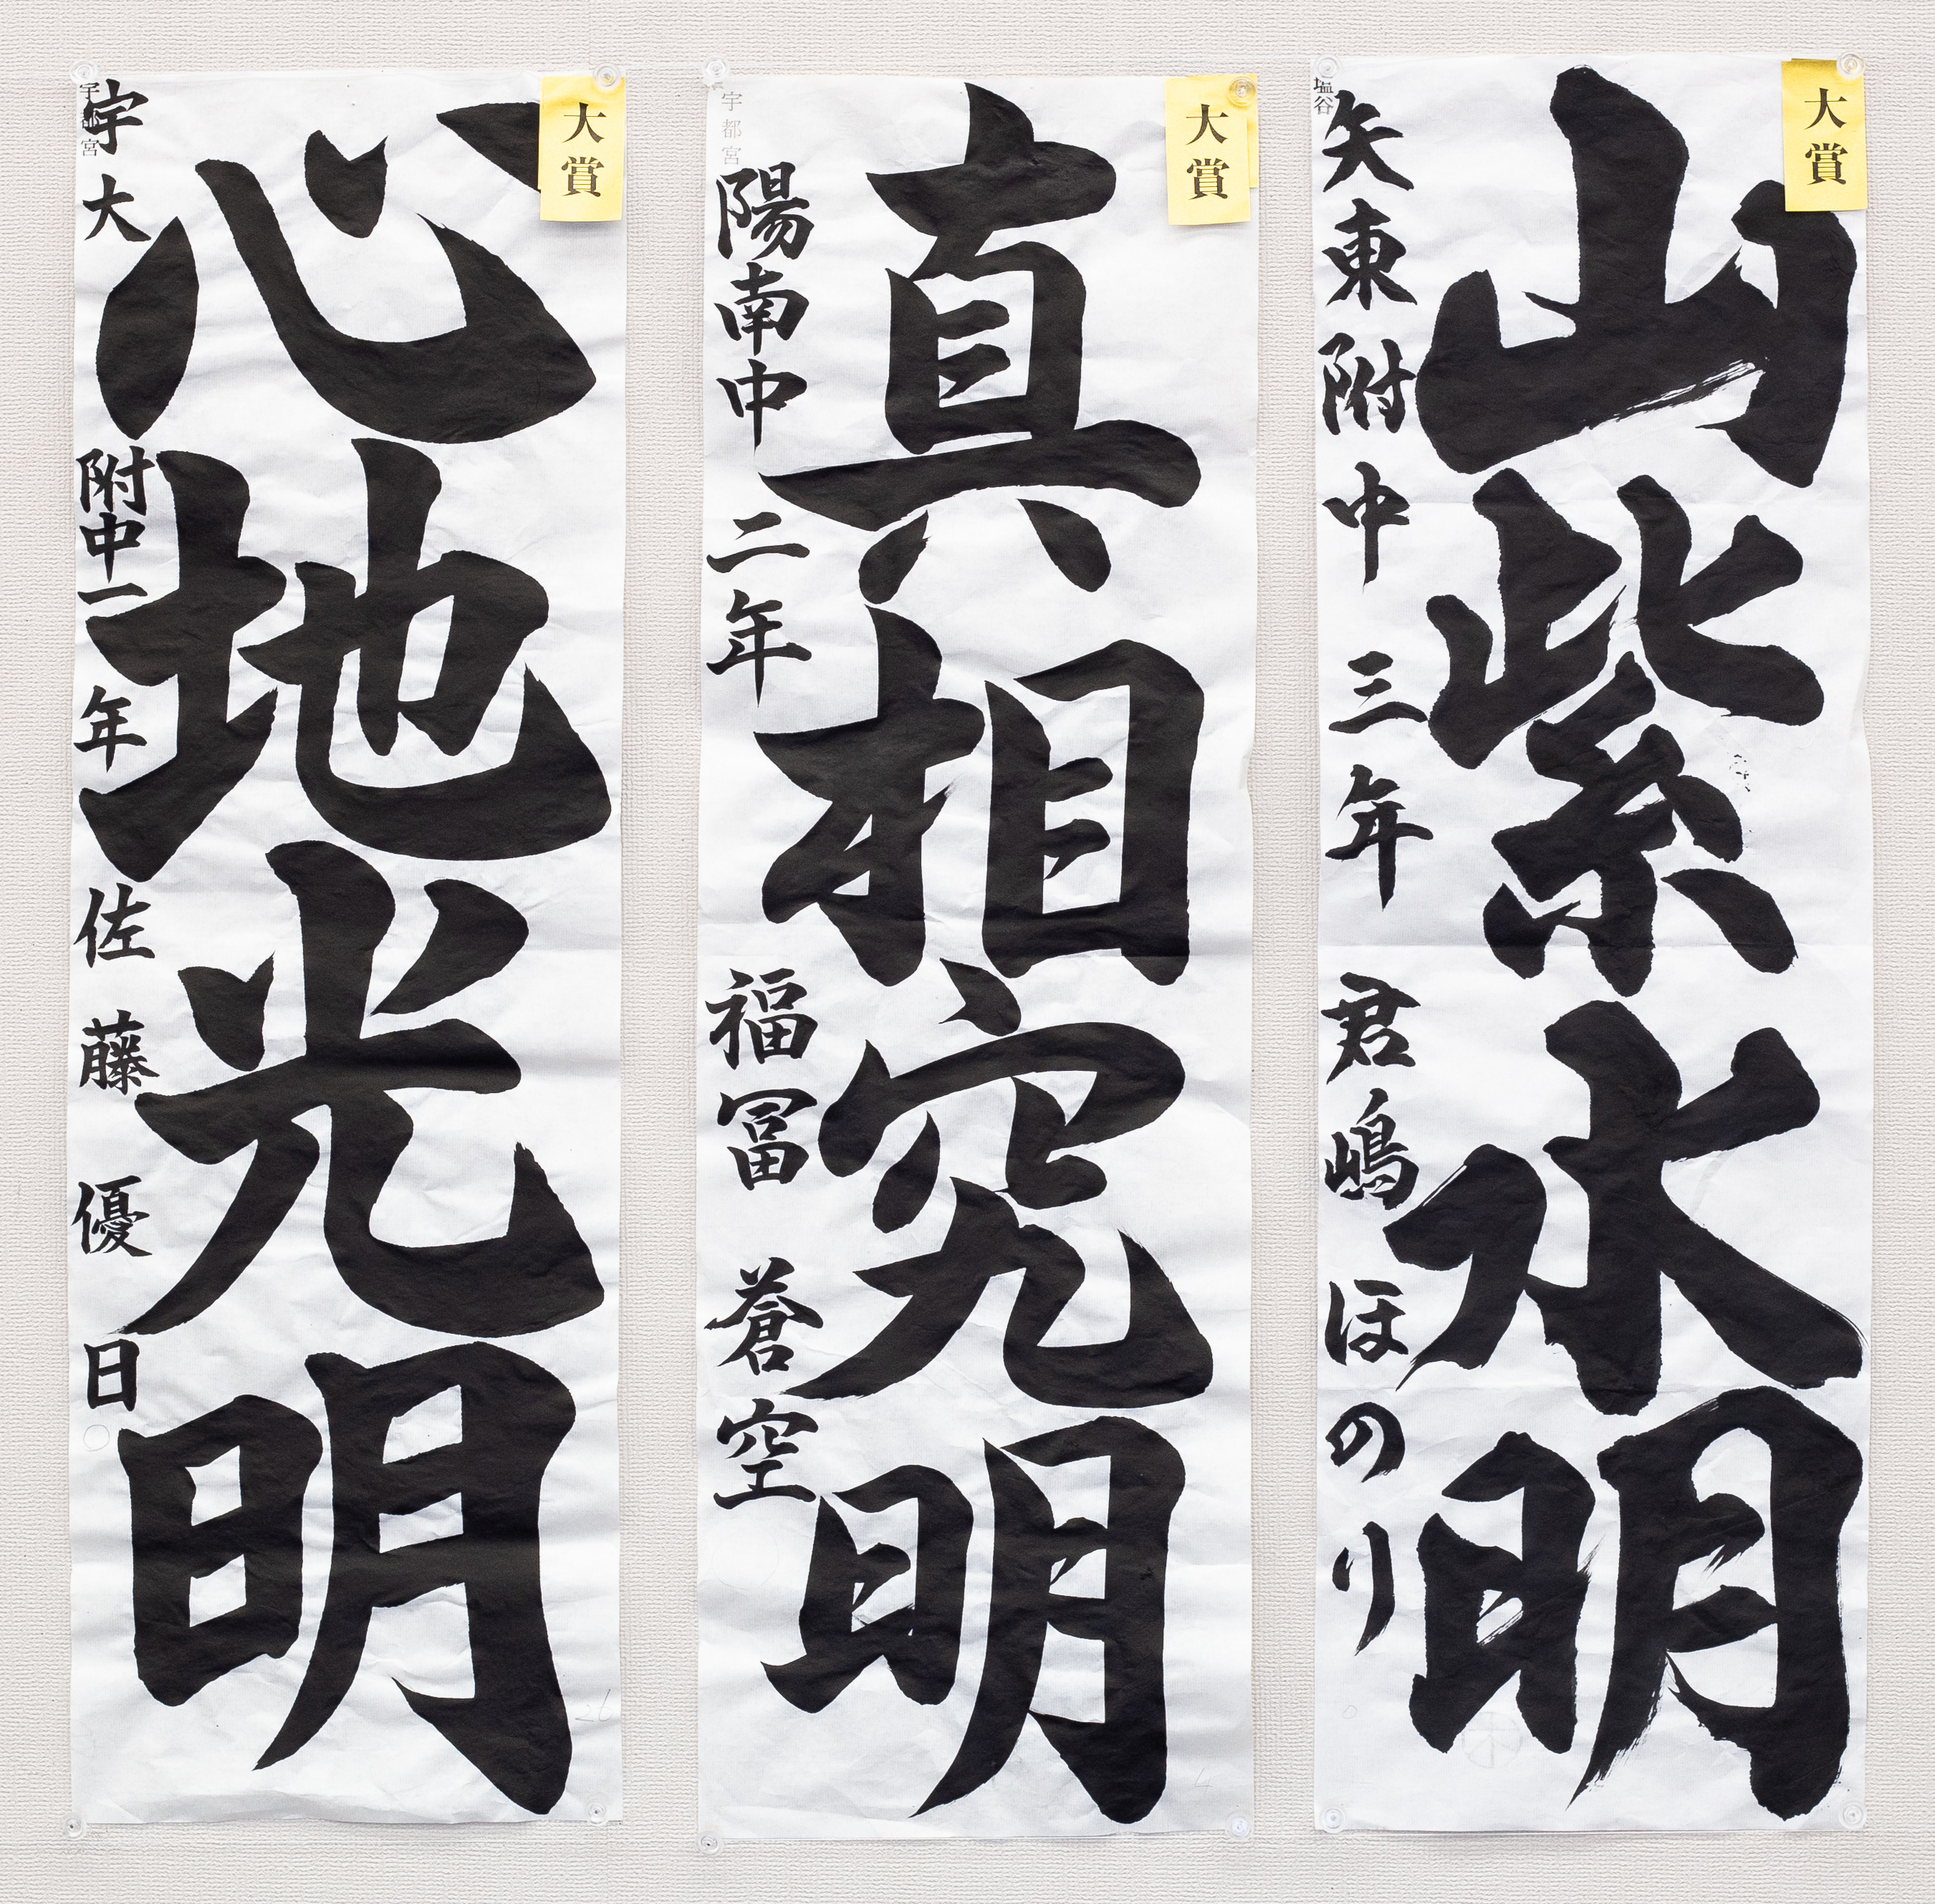 大賞
山紫水明
塩谷
矢東附中三年 君嶋ほのり
大賞
真相究明
宇都宮
陽南中二年 福冨蒼空
大賞
心地光明
宇都宮
宇大附中一年 佐藤優日